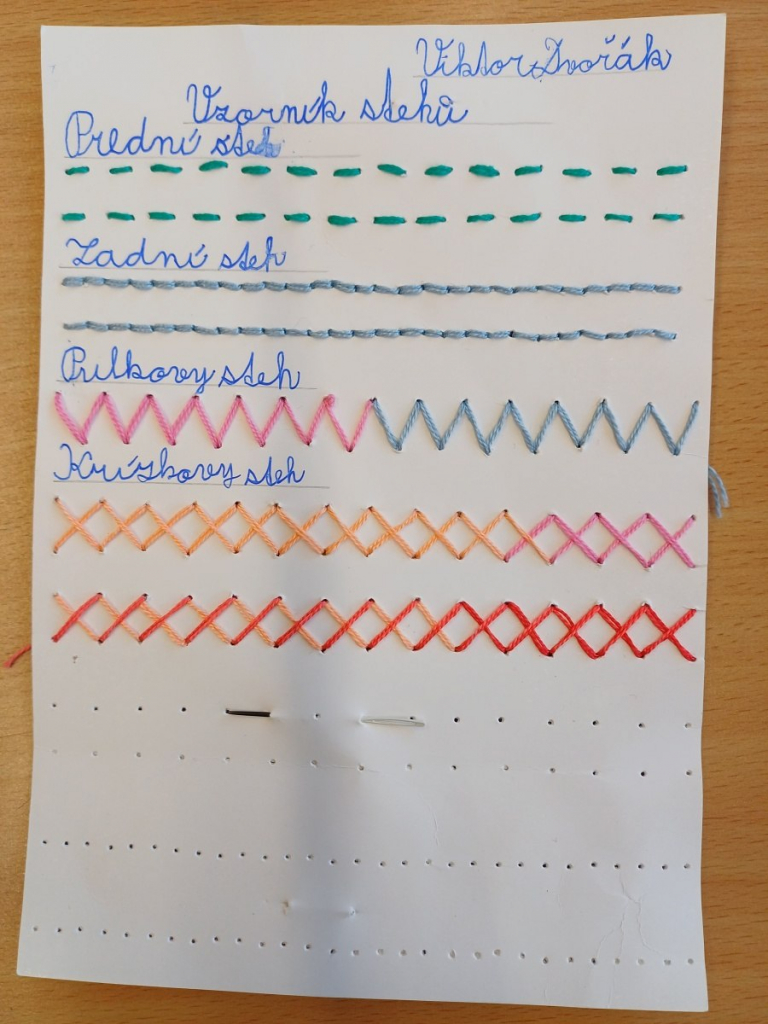 Viktor Dvořák
Vzorník stehů
Přední steh
Zadní steh
Pulkovy steh
Křížkovy steh